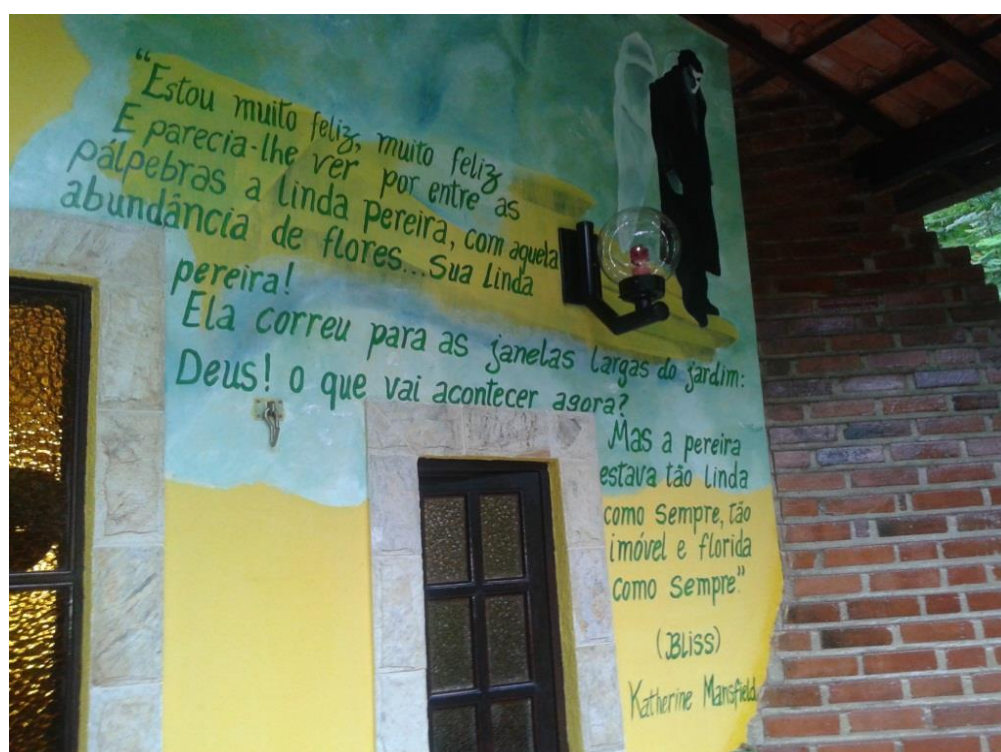 “Estou muito feliz, muito feliz
E parecia-lhe ver por entre as
pálpebras a linda pereira, com aquela
abundância de flores...Sua linda
pereira!
Ela correu para as janelas largas do jardim:
Deus! o que vai acontecer agora?
Mas a pereira
estava tão linda
como sempre, tão
imóvel e florida
como sempre”
(Bliss)
Katherine Mansfield